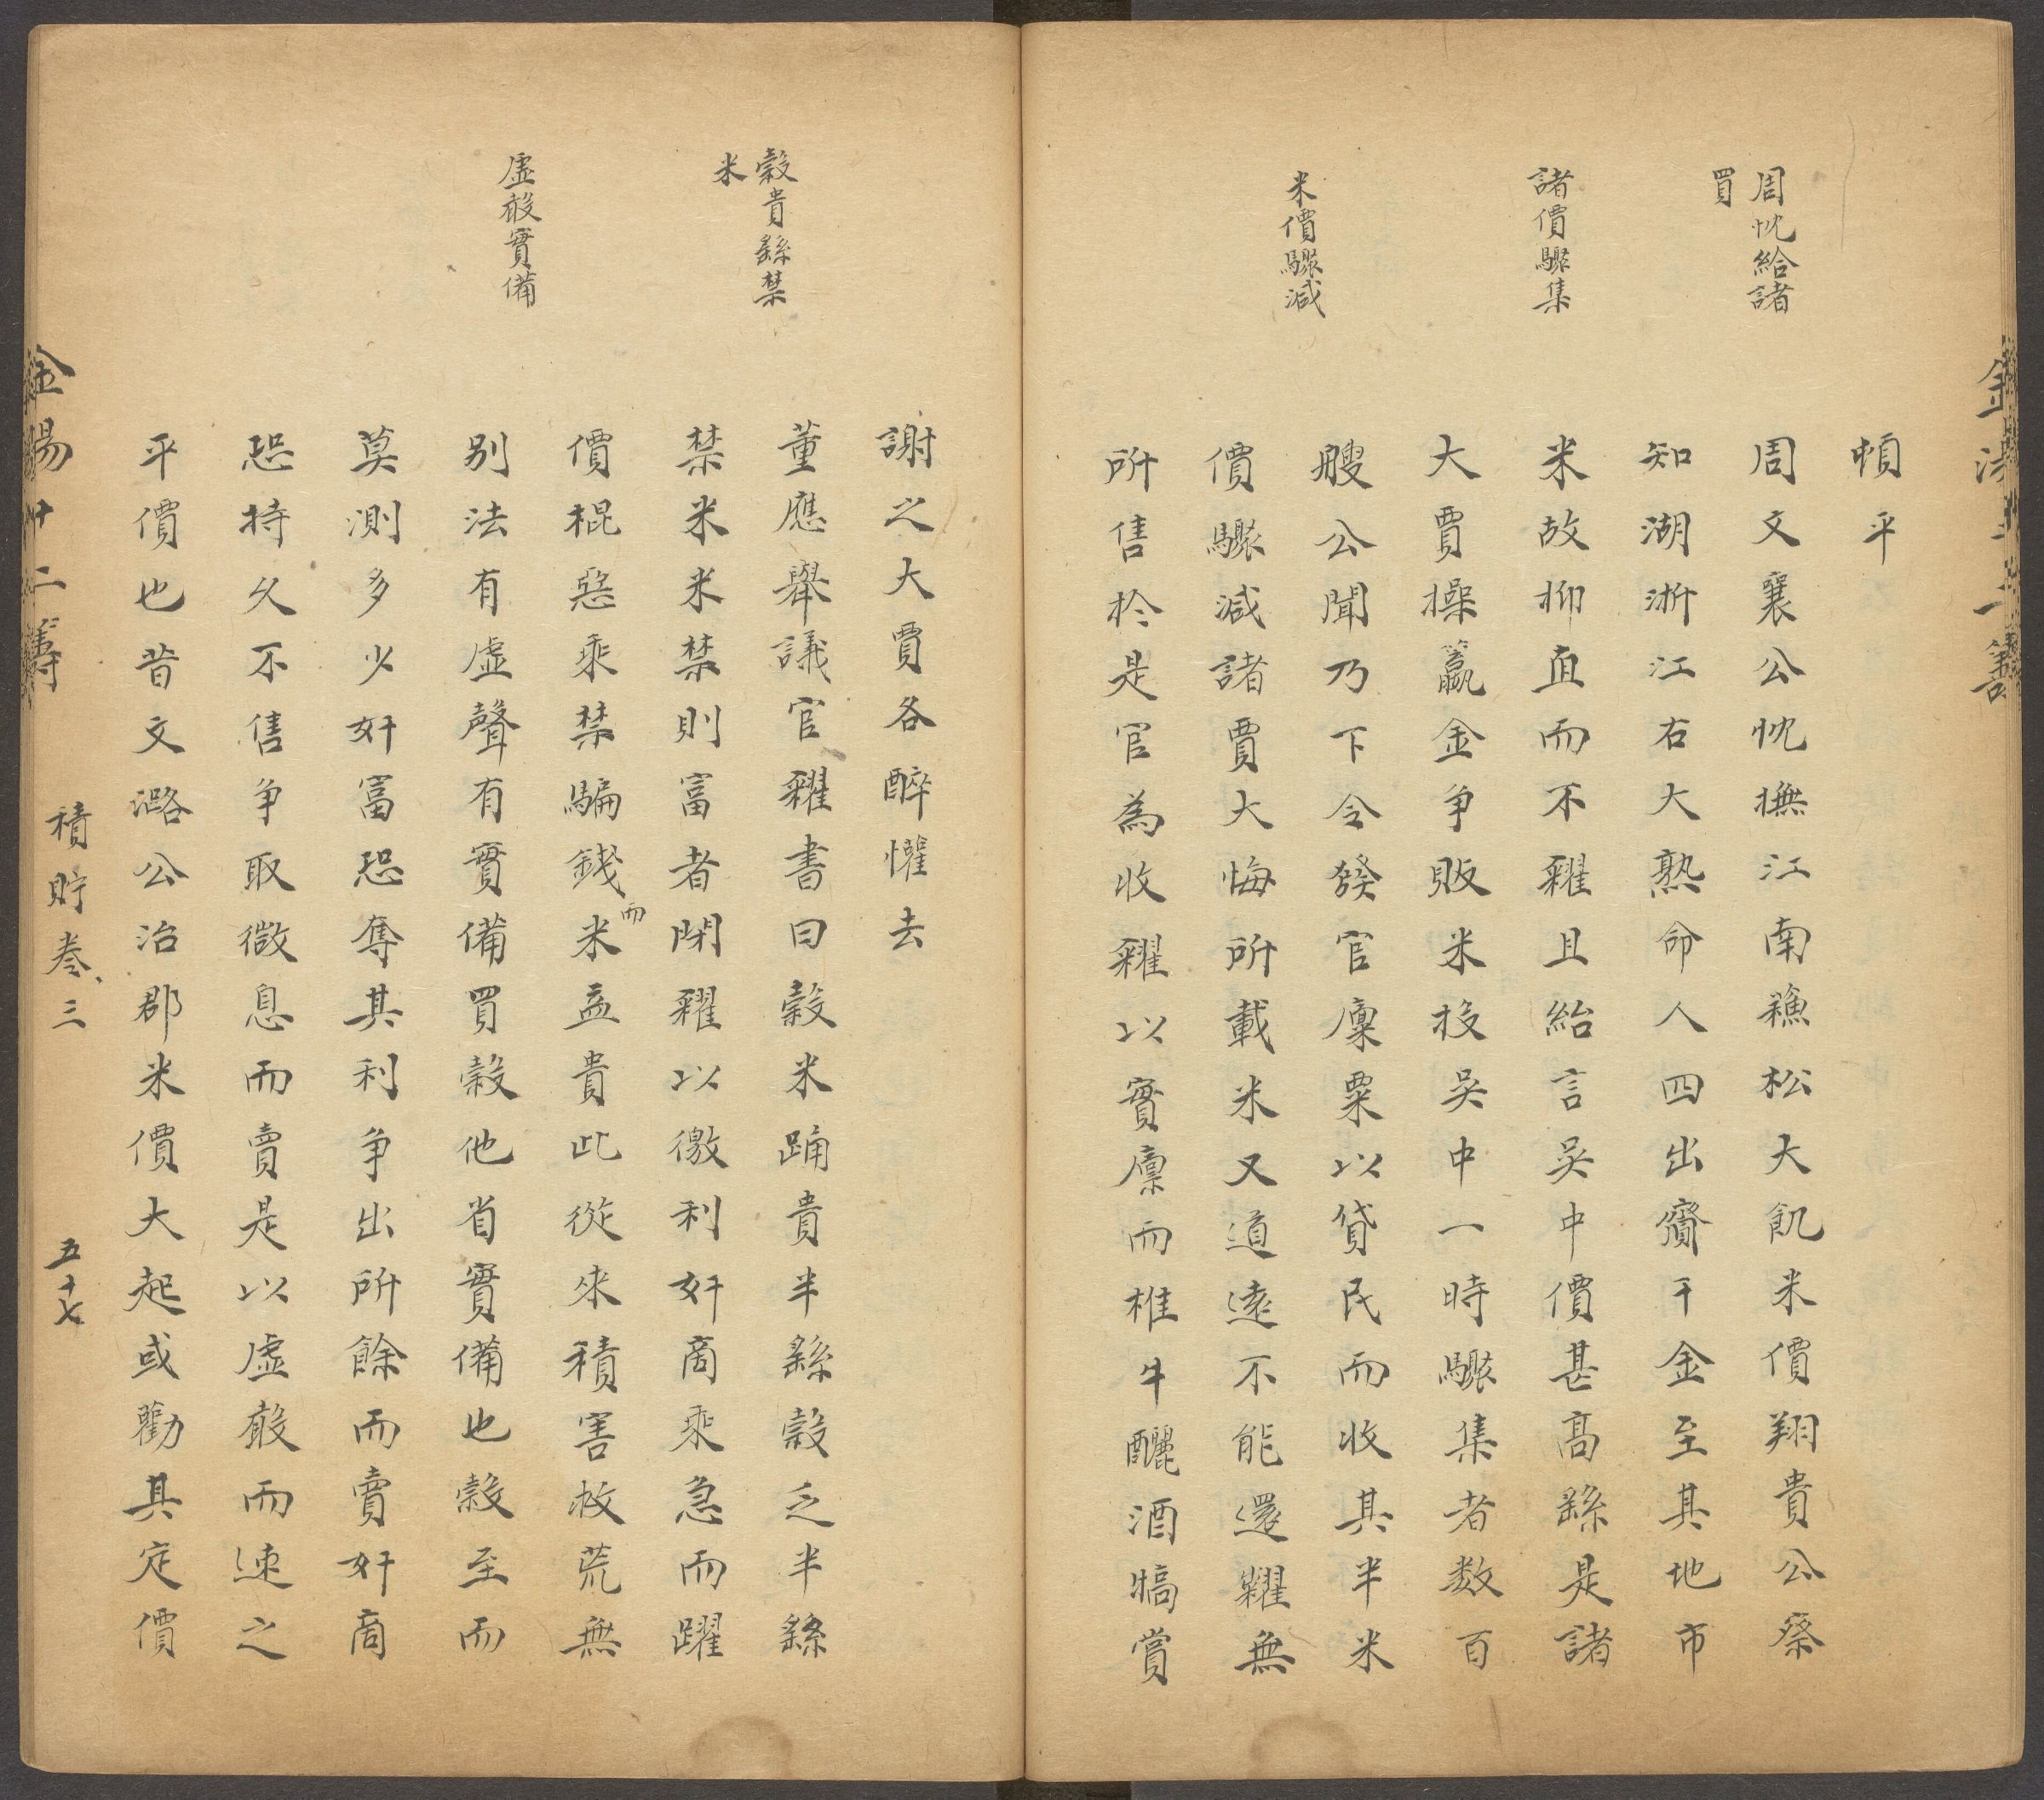 周忱給諸
買
諸價驟集
米價驟減
頓平
周文襄公忱撫江南蘓松大飢米價翔貴公察
知湖淅江右大熟命人四出齎千金至其地市
米故抑直而不糴且紿言吳中價甚高繇是諸
大賈操羸金争販米投吳中一時驟集者数百
艘公聞乃下令發官廩粟以貸民而收其半米
價驟減諸賈大悔所載米又道遠不能還糶無
所售於是官為收糴以實廩而椎牛釃酒犒賞
穀貴繇禁
米
虛散實備
謝之大賈各醉懽去
董應舉議官糴書曰穀米踊貴半繇穀乏半繇
禁米米禁則富者閉糴以徼利奸商乘急而躍
價棍惡乘禁騙錢而米益貴此從來積害救荒無
别法有虛聲有實備買穀他省實備也穀至而
莫測多少奸富恐奪其利争出所餘而賣奸商
恐持久不售争取微息而賣是以虛散而速之
平價也昔文潞公治郡米價大起或勸其定價
金湯十二籌
積貯卷三
五十七